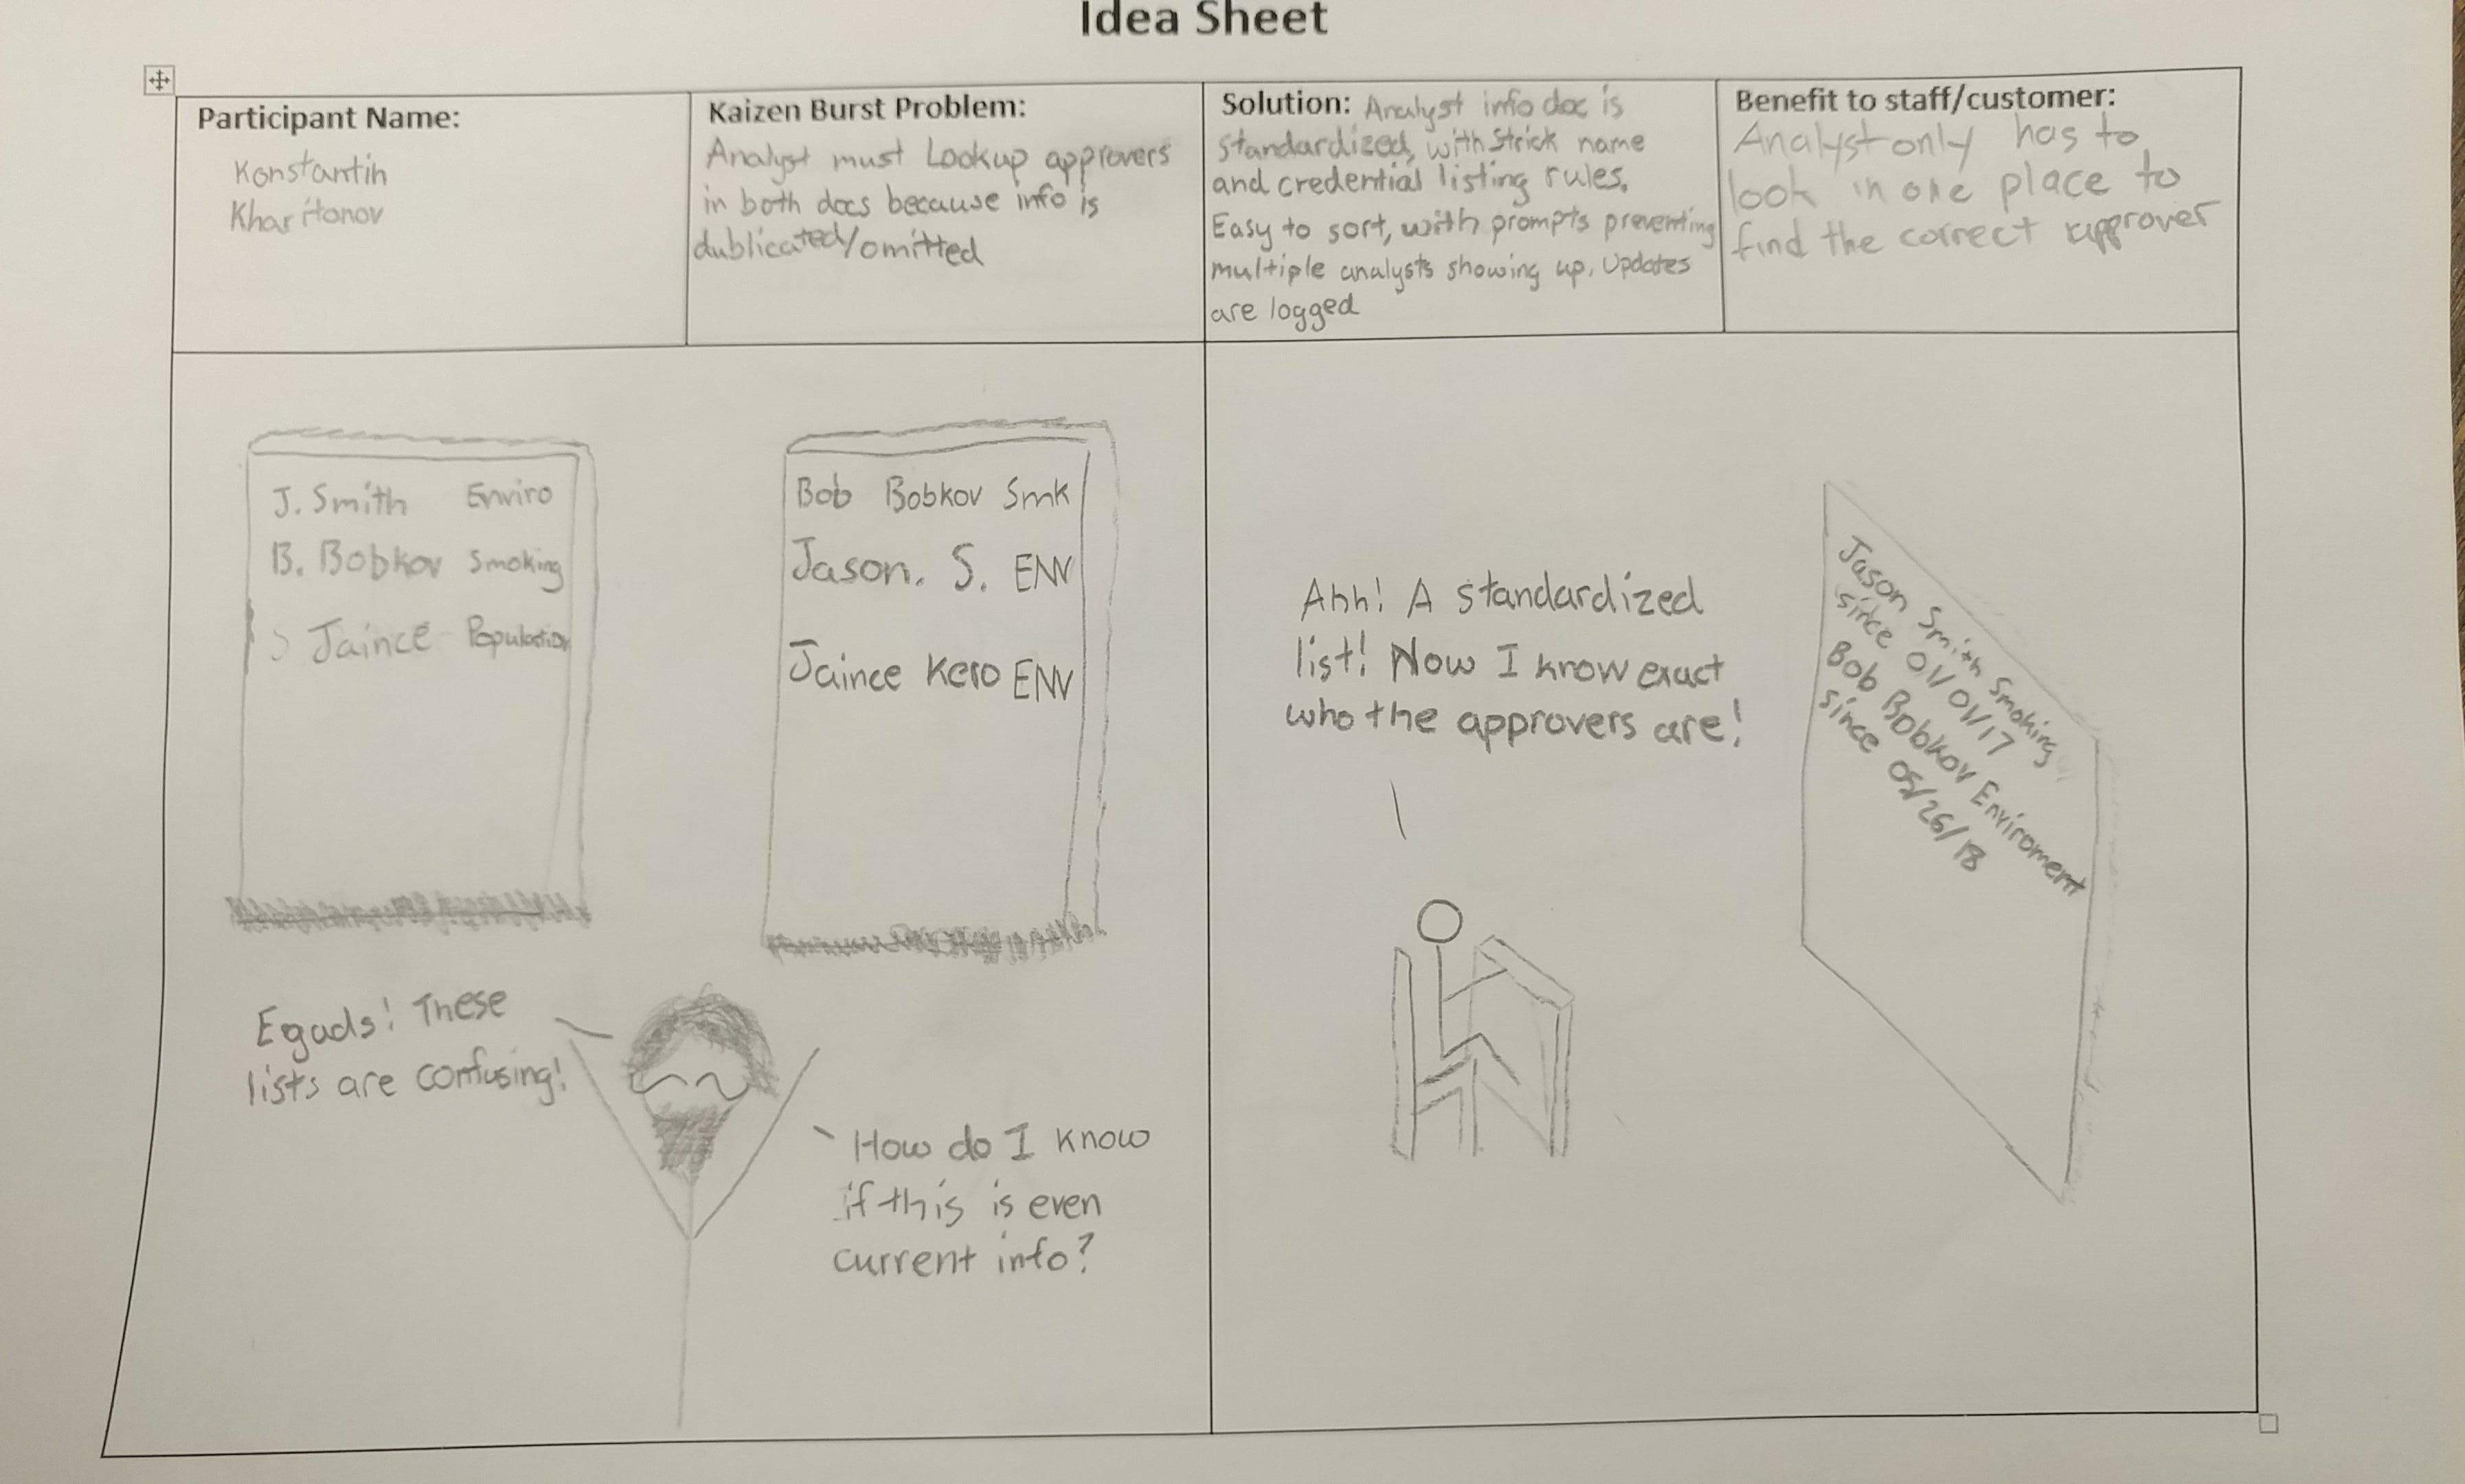 Idea Sheet
Participant Name:
Konstantin
Kharitonov
Kaizen Burst Problem:
Analyst must Lookup approvers
in both docs because info is
dublicated/omitted
Solution: Analyst info doc is
standardized, with Strick name
and credential listing rules.
Easy to sort, with prompts preventing
multiple analysts showing up. Updates
are logged
Benefit to staff/customer:
Analyst only has to
look in one place to
find the correct approver
J. Smith Enviro
B. Bobkov Smoking
Jaince Population
Bob Bobkov Smk
Jason. S. ENV
Jaince Kero ENV
Egads! These
lists are confusing!
How do I know
if this is even
current info?
Ahh! A standardized
list! Now I know exact
who the approvers are!
Jason Smith Smoking
since 01/01/17
Bob Bobkov Enviroment
since 05/26/18